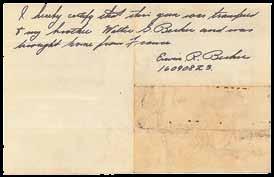 I hereby certify that this gun was transferd
to my brother Walter G. Becker and was
brought home from France
Erwin R. Becker
16090823.